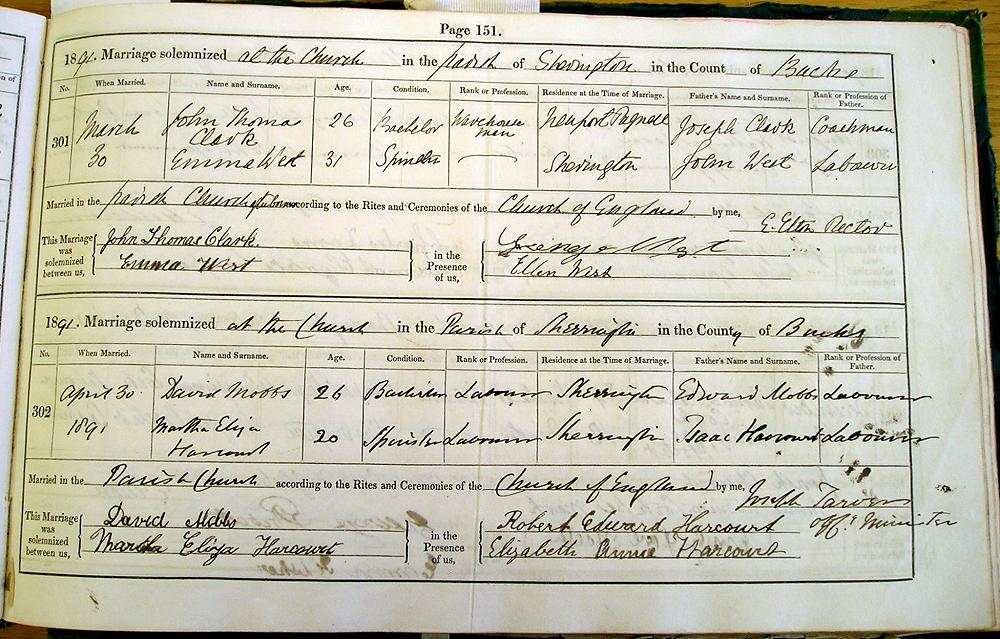 Page 151.
1891. Marriage solemnized at the Church in the parish of Sherington in the Count of Bucks
No. When Married. Name and Surname. Age. Condition. Rank or Profession. Residence at the Time of Marriage. Father's Name and Surname. Rank or Profession of Father.
301 March John Thomas Clark 26 Bachelor Warehouse man Newport Pagnell Joseph Clark Coachman
30 Emma West 31 Spinster Sherington John West Labourer
Married in the parish Church according to the Rites and Ceremonies of the Church of England by me,
E. Elton Rector
This Marriage was solemnized between us,
John Thomas Clark
Emma West
in the Presence of us,
George West
Ellen West
1891. Marriage solemnized at the Church in the Parish of Sherrington in the County of Bucks
No. When Married. Name and Surname. Age. Condition. Rank or Profession. Residence at the Time of Marriage. Father's Name and Surname. Rank or Profession of Father.
302 April 30 David Mobbs 26 Bachelor Labourer Sherrington Edward Mobbs Labourer
1891 Martha Eliza Harcourt 20 Spinster Labourer Sherrington Isaac Harcourt Labourer
Married in the Parish Church according to the Rites and Ceremonies of the Church of England by me,
Joseph Tarver
Offg. Minister
This Marriage was solemnized between us,
David Mobbs
Martha Eliza Harcourt
in the Presence of us,
Robert Edward Harcourt
Elizabeth Annie Harcourt